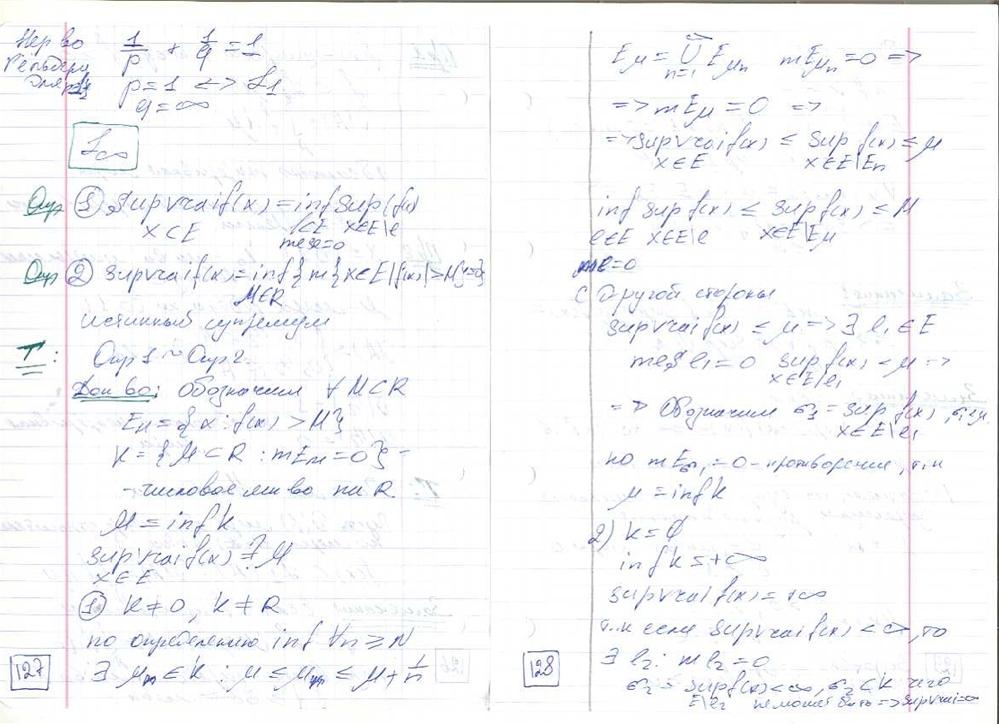 Нер-во 1/p + 1/q = 1
Гельдера
p=1 <=> L1
q=∞
L∞
Опр ① supvrai f(x) = inf sup f(x)
x⊂E e⊂E x∈E\e
mes e=0
Опр ② supvrai f(x) = inf{m{x∈E|f(x)|>M}=0}
M∈R
Истинный супремум
Т: Опр 1 ~ Опр 2.
Док-во: Обозначим ∀ M⊂R
E_M = {x: f(x) > M}
K = {M⊂R : mE_M=0} -
- числовое мн-во на R
μ = inf K
supvrai f(x) =? μ
x∈E
① K≠0, K≠R
по определению inf ∀n≥N
∃ μ_n ∈ K : μ ≤ μ_n ≤ μ + 1/n
127
E_μ = ∪ E_μn mE_μn = 0 =>
n=1
=> mE_μ = 0 =>
=> supvrai f(x) ≤ sup f(x) ≤ μ
x∈E x∈E\En
inf sup f(x) ≤ sup f(x) ≤ μ
e∈E x∈E\e x∈E\Eμ
me=0
С другой стороны
supvrai f(x) ≤ μ => ∃ e₁∈E
mes e₁=0 sup f(x) < μ =>
x∈E\e₁
=> Обозначим σ₁ = sup f(x), σ₁<μ
x∈E\e₁
но mEσ₁=0 - противоречие, т.к
μ = inf K
2) K = ∅
inf K = +∞
supvrai f(x) = +∞
т.к если supvrai f(x) < ∞, то
∃ e₂: m e₂ = 0
σ₂ = sup f(x) < ∞, σ₂⊂K чего
E\e₂ не может быть => supvrai=∞
128